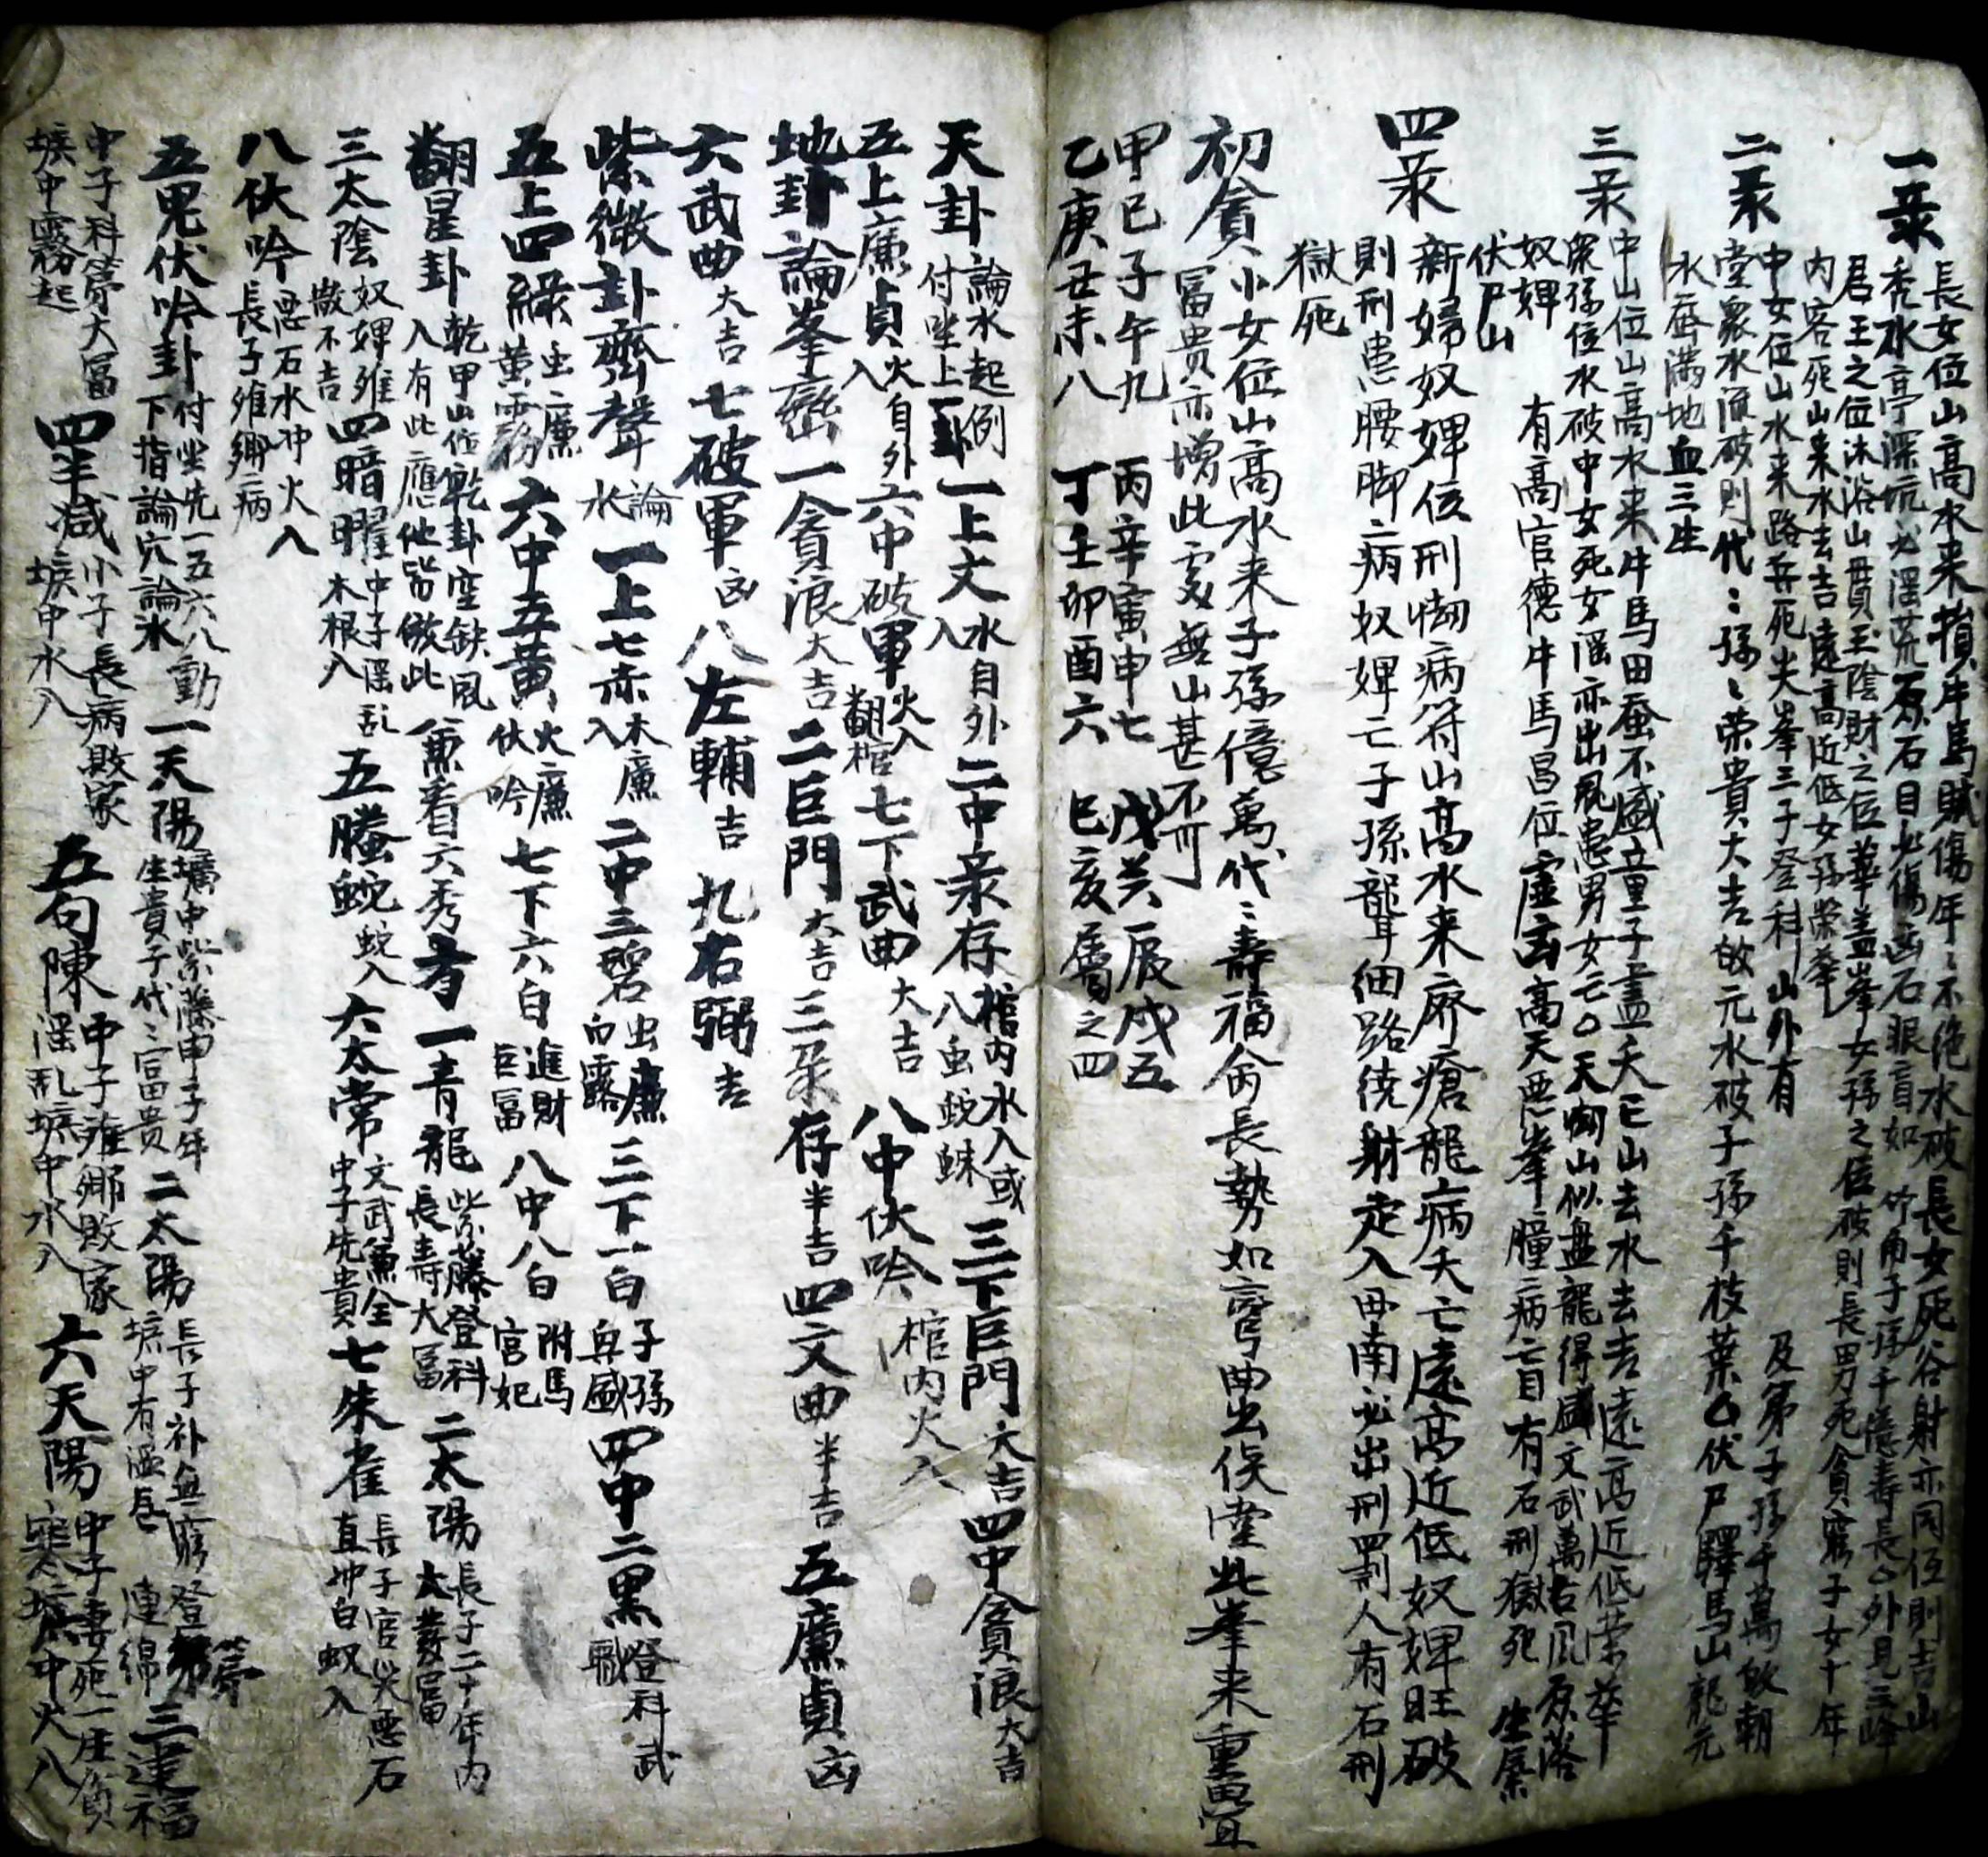 一彔
長女位山高水来損牛馬賊傷年〻不絶水破長女死谷射亦同位則吉山
禿水亭深坑必淫荒原石目必傷凶石眼盲如竹甬子孫千億壽長凸外見三峰
君王之位沐浴山貫玉陰財之位華盖峯女孫之位破則長男死貪窮子女十年
内客死山来水去吉遠高近低女孫榮華
二彔
中女位山水来路兵死尖峯三子登科山外有及第子孫千萬
堂衆水流破則代〻孫〻荣貴大吉故元水破子孫千枝葉凸伏尸驛馬山龍元
水齊滿地血三生
三彔
中山位山高水来牛馬田蚕不盛童子盡夭亡山去水去吉遠高近低荣華
衆孫位水破中女死女淫亦出風患男女亡凸天蜘山似盘龍得盛文武萬古风原落
奴婢有高官德牛馬昌位虛玄高天悪峯瞳二病亡盲有石刑獄死
伏尸山
四彔
新婦奴婢位刑蜘病符山高水来麻瘡龍病夭亡遠高近低奴婢旺破
則刑患腰脚二病奴婢亡子孫聾細路绕射走入毋南必出刑罰人有石刑
獄死
初貪
小女位山高水来子孫億萬代〻壽福俞丙長勢如穹曲出俟堂此峯来重疊
冨贵亦增此處無山甚不可
甲己子午九 丙辛寅申七 戊癸辰戌五
乙庚丑未八 丁壬卯酉六 巳亥屬之四
天卦論水起例付坐上一卦一上文水自外入二中彔存棺内水入或八虫蛇蛛三下巨門大吉四中貪浪大吉
五上廉貞火自外入六中破軍火入翻棺七下武曲大吉八中伏吟棺内火入
地卦論峯巒一貪浪大吉二巨門大吉三彔存半吉四文曲半吉五廉貞凶
六武曲大吉七破軍凶八左輔吉九右弼吉
紫微卦齊聲論水一上七赤木廉入二中三碧虫廉白露三下一白子孫與盛四中二黑登科武職
五上四綠虫二廉黃霧六中五黃火廉伏吟七下六白進財巨冨八中八白附馬宫妃
翻星卦乾甲山位乾卦空缺風入有此應他皆倣此兼看六秀者一青龍紫藤登科長壽大冨二太陽長子二十年内大發冨
三太陰奴婢雖散不吉四暗曜中子淫乱木根入五螣蛇蛇入六太常文武兼全中子先貴七朱雀長子官災悪石直冲白蚁入
八伏吟悪石水冲火入長子雖鄉病
五鬼伏吟卦付坐先一五六八動下指論穴論水一天陽壙中紫藤中子年生貴子代〻冨贵二太陽長子补無窮登第壙中有温色連綿三逹福
中子科第大冨壙中霧起四半减小子長病敗家壙中水入五句陳中子雖鄉敗家淫乱壙中水入六天陽中子妻死一庄負寒壙中火入